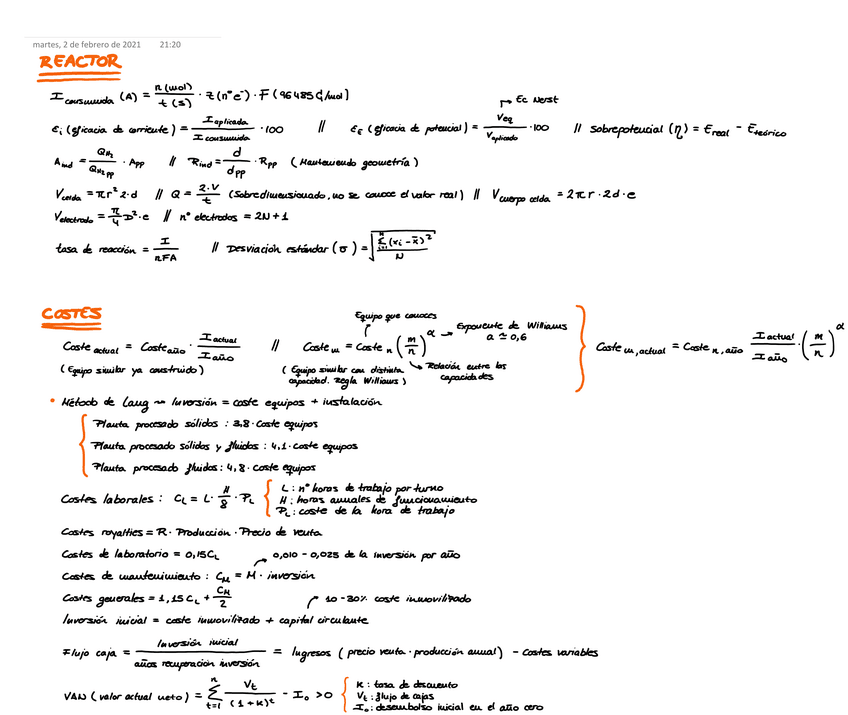 martes, 2 de febrero de 2021 21:20
REACTOR
I consumida (A) = n (mol) / t (s) · z (nº e⁻) · F (96485 C/mol)
→ Ec Nerst
εi (eficacia de corriente) = I aplicada / I consumida · 100 // εE (eficacia de potencial) = Veq / Vaplicado · 100 // sobrepotencial (η) = Ereal - Eteórico
Aind = QH2 / QH2 pp · App // Rind = d / dpp · Rpp (Manteniendo geometría)
Vcelda = π r² 2·d // Q = 2·V / t (Sobredimensionado, no se conoce el valor real) // Vcuerpo celda = 2π r · 2d · e
Velectrodo = π/4 D² · e // nº electrodos = 2N + 1
tasa de reacción = I / nFA // Desviación estándar (σ) = √(Σ i=1 N (xi - x̄)² / N)
COSTES
Equipo que conoces
Coste actual = Coste año · I actual / I año // Coste m = Coste n (m/n)^α → Exponente de Williams α ≃ 0,6
Coste m, actual = Coste n, año I actual / I año · (m/n)^α
(Equipo similar ya construido) (Equipo similar con distinta capacidad. Regla Williams) → Relación entre las capacidades
• Método de Lang ~ Inversión = coste equipos + instalación
Planta procesado sólidos : 3,8 · Coste equipos
Planta procesado sólidos y fluidos : 4,1 · coste equipos
Planta procesado fluidos : 4,8 · coste equipos
Costes laborales : CL = L · H/8 · PL
L : nº horas de trabajo por turno
H : horas anuales de funcionamiento
PL : coste de la hora de trabajo
Costes royalties = R · Producción · Precio de venta
Costes de laboratorio = 0,15 CL
0,010 - 0,025 de la inversión por año
Costes de mantenimiento : CM = M · inversión
Costes generales = 1,15 CL + CM / 2
10 - 30% coste inmovilizado
Inversión inicial = coste inmovilizado + capital circulante
Flujo caja = Inversión inicial / años recuperación inversión = Ingresos (precio venta · producción anual) - Costes variables
VAN (valor actual neto) = Σ t=1 n Vt / (1 + K)^t - I₀ > 0
K : tasa de descuento
Vt : flujo de cajas
I₀ : desembolso inicial en el año cero